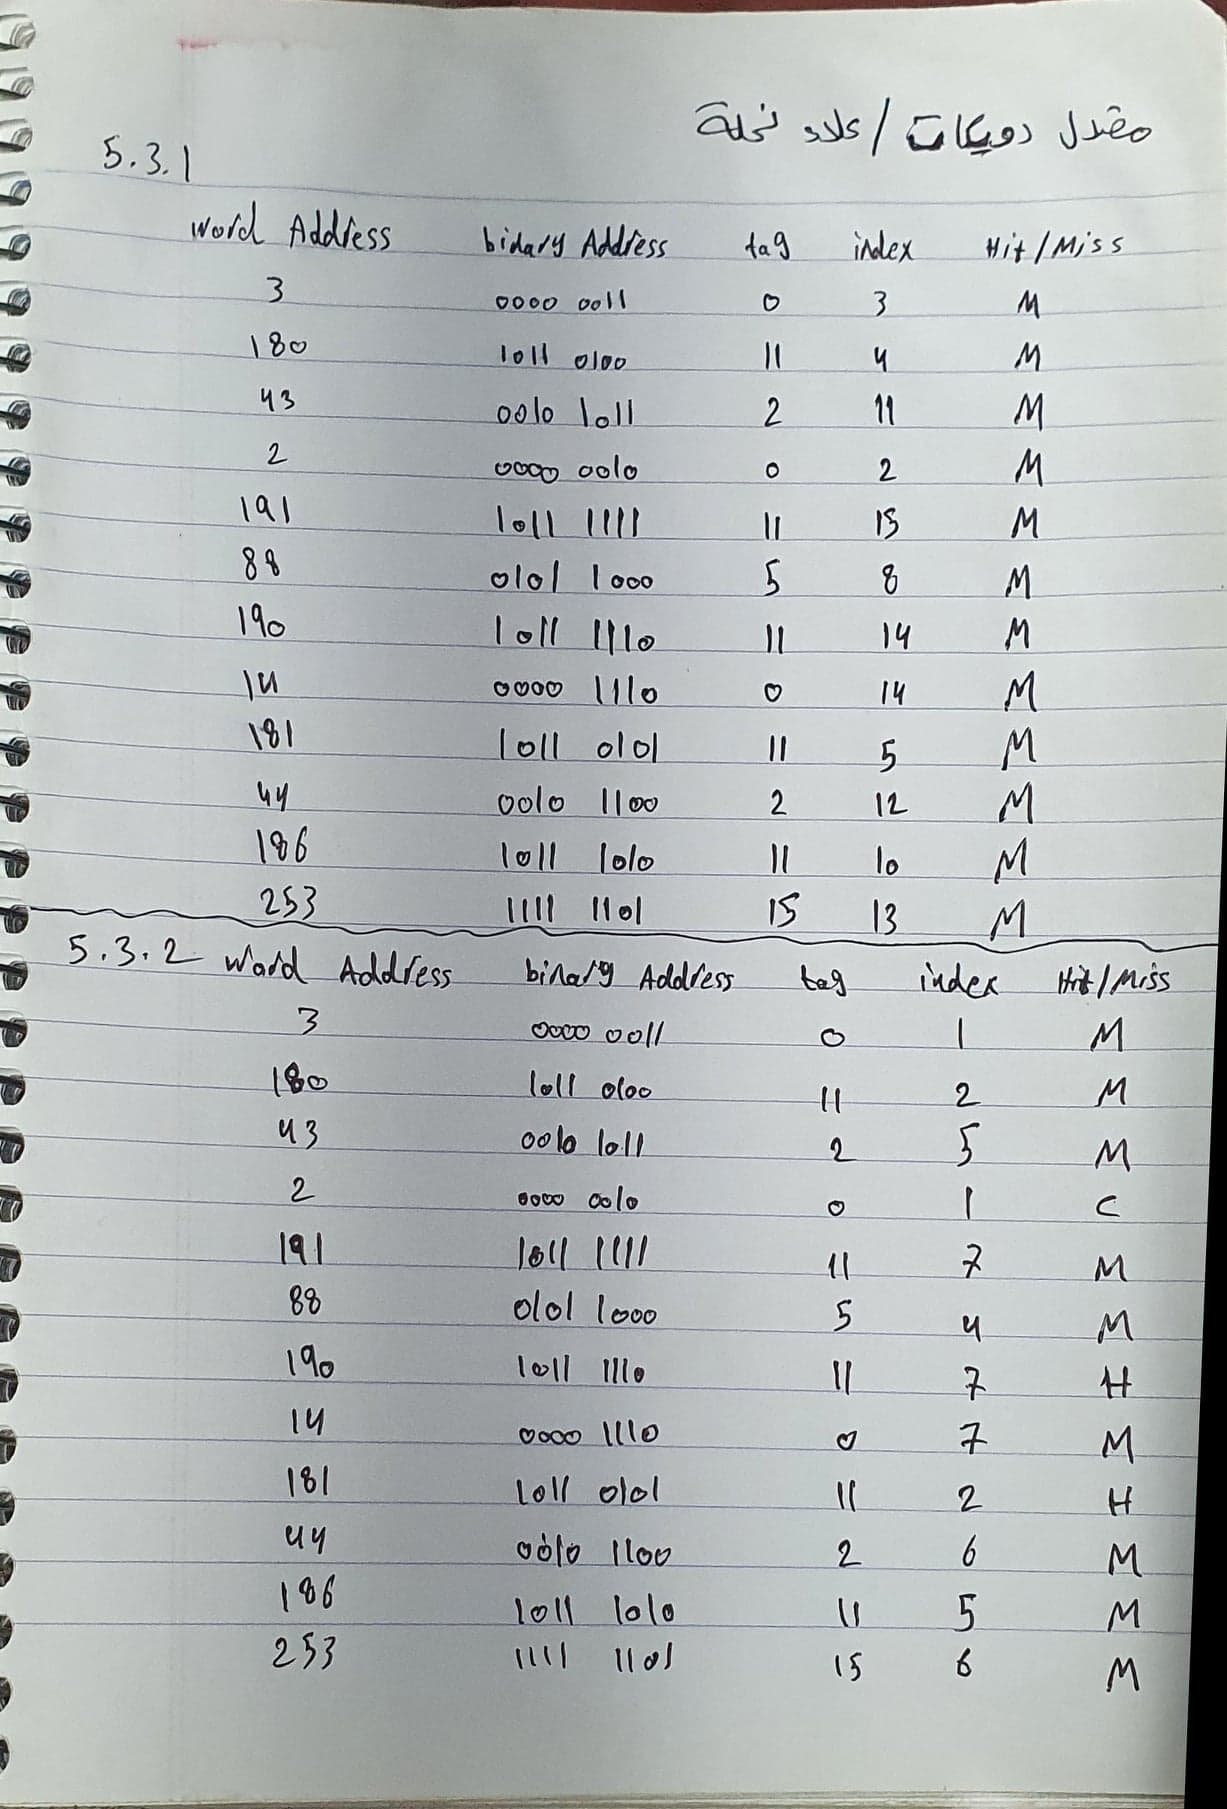 مقدل دويكات / علاء نخلة
5.3.1
word Address binary Address tag index Hit/Miss
3 0000 0011 0 3 M
180 1011 0100 11 4 M
43 0010 1011 2 11 M
2 0000 0010 0 2 M
191 1011 1111 11 15 M
88 0101 1000 5 8 M
190 1011 1110 11 14 M
14 0000 1110 0 14 M
181 1011 0101 11 5 M
44 0010 1100 2 12 M
186 1011 1010 11 10 M
253 1111 1101 15 13 M
5.3.2 word Address binary Address tag index Hit/Miss
3 0000 0011 0 1 M
180 1011 0100 11 2 M
43 0010 1011 2 5 M
2 0000 0010 0 1 C
191 1011 1111 11 7 M
88 0101 1000 5 4 M
190 1011 1110 11 7 H
14 0000 1110 0 7 M
181 1011 0101 11 2 H
44 0010 1100 2 6 M
186 1011 1010 11 5 M
253 1111 1101 15 6 M